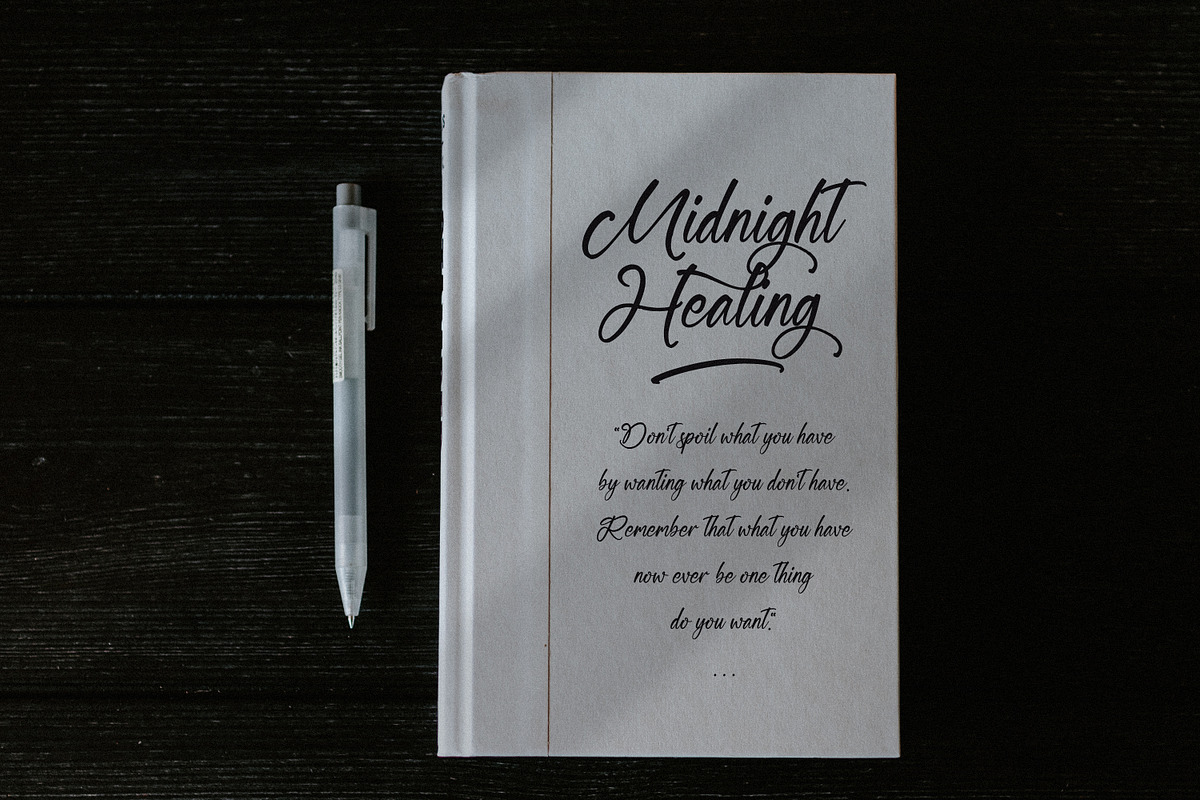 Midnight
Healing
“Don't spoil what you have
by wanting what you don't have.
Remember that what you have
now ever be one thing
do you want.“
...